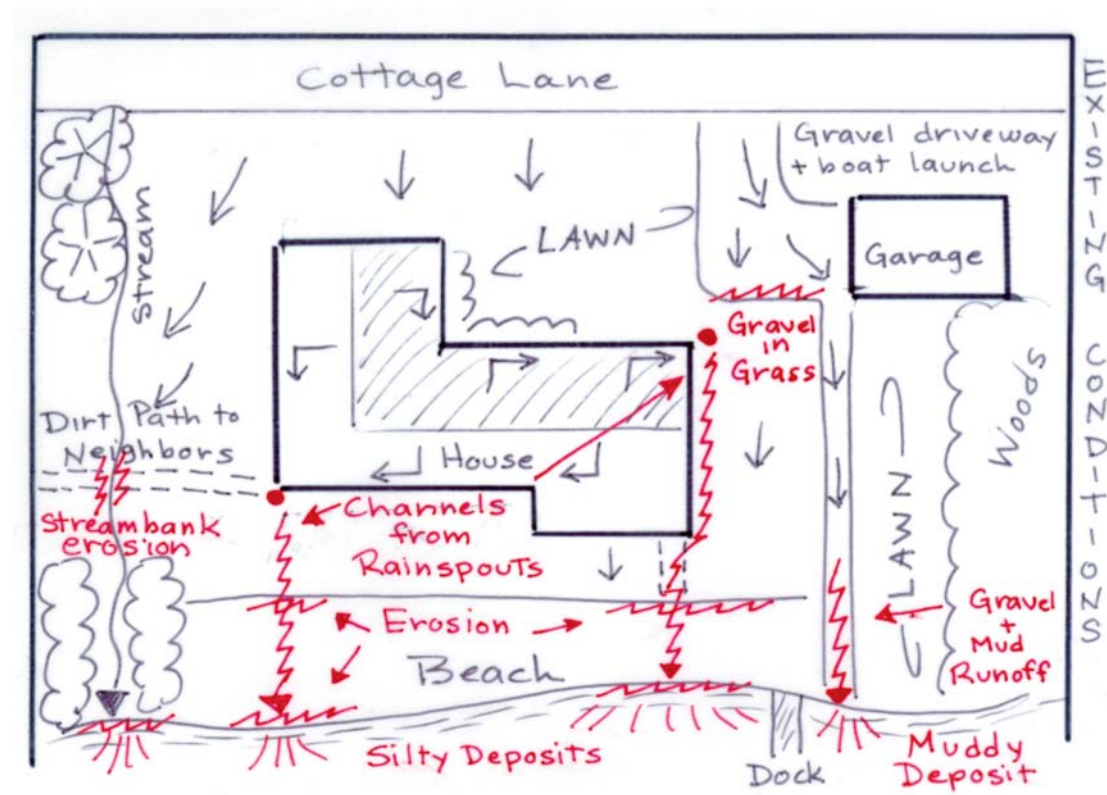 Cottage Lane
EXISTING CONDITIONS
Gravel driveway
+ boat launch
Stream
LAWN
Garage
Gravel
in
Grass
Woods
Dirt Path to
Neighbors
House
Streambank
erosion
Channels
from
Rainspouts
LAWN
Erosion
Gravel
+
Mud
Runoff
Beach
Silty Deposits
Dock
Muddy
Deposit